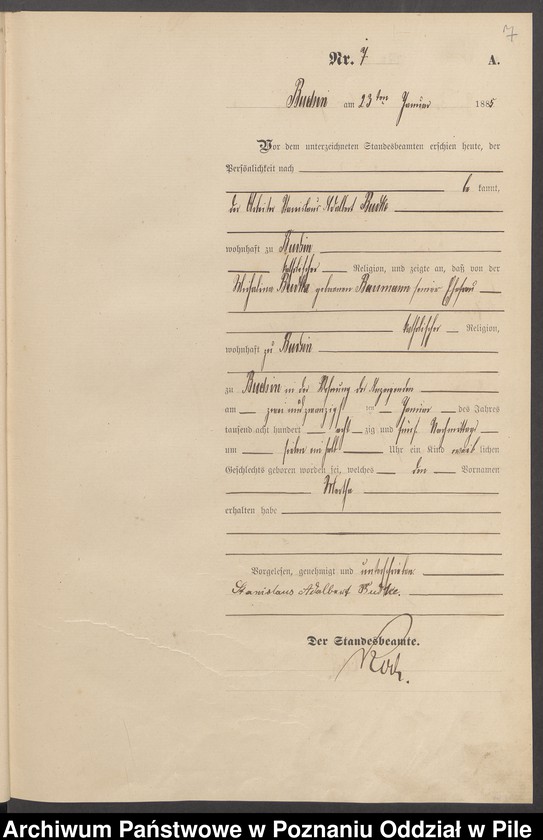 7
Nr. 7 A.
Budsin am 23ten Januar 1885
Vor dem unterzeichneten Standesbeamten erschien heute, der
Persönlichkeit nach
be kannt,
der Arbeiter Stanislaus Adalbert Budke
wohnhaft zu Budsin
katholischer Religion, und zeigte an, daß von der
geborenen Baumann seiner Ehefrau
katholischer Religion,
wohnhaft zu Budsin
zu Budsin in der Wohnung des Anzeigenden
am zwei und zwanzig ten Januar des Jahres
tausend acht hundert acht zig und fünf Nachmittags
um sieben ein halb Uhr ein Kind weib lichen
Geschlechts geboren worden sei, welches den Vornamen
Martha
erhalten habe
Vorgelesen, genehmigt und unterschrieben
Stanislaus Adalbert Budke.
Der Standesbeamte.
Archiwum Państwowe w Poznaniu Oddział w Pile